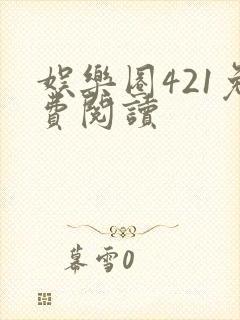 娛樂圈421免
費閱讀
幕雪0